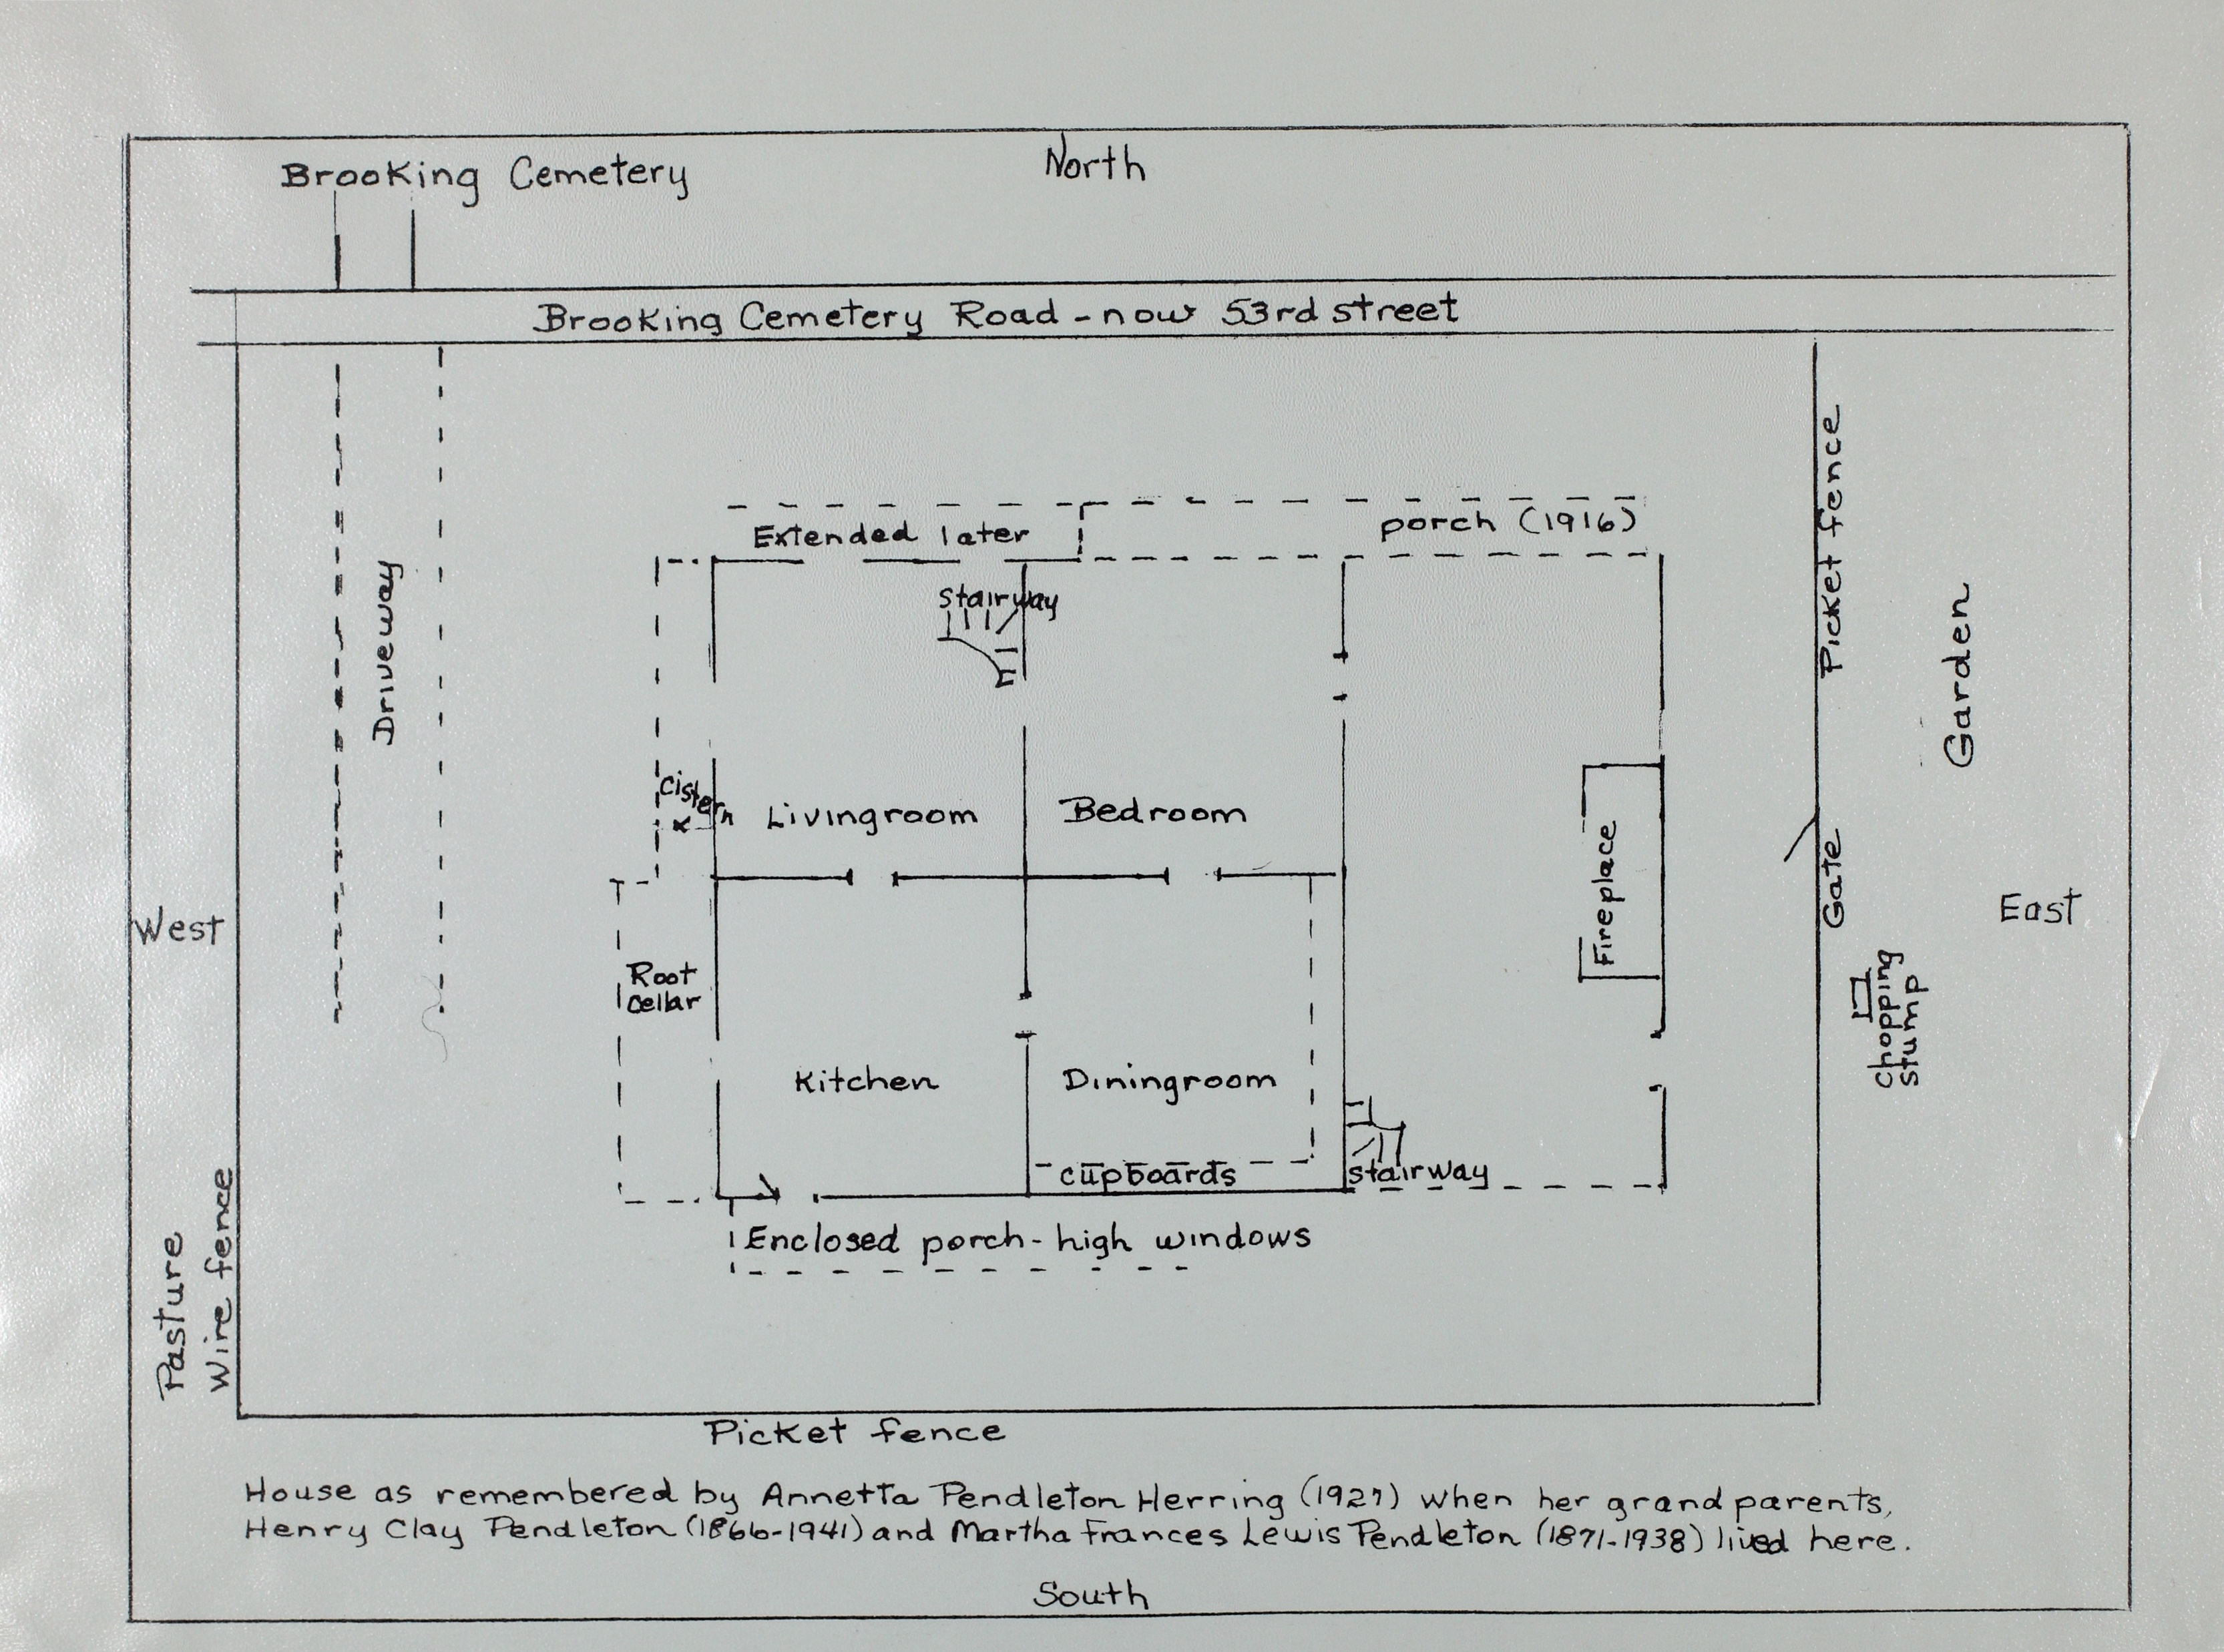 North
Brooking Cemetery
Brooking Cemetery Road - now 53rd street
Extended later
porch (1916)
stairway
Picket fence
Driveway
Garden
Cistern
x
Livingroom
Bedroom
Fireplace
Gate
West
East
Root
cellar
chopping
stump
Kitchen
Diningroom
cupboards
stairway
Enclosed porch - high windows
Pasture
Wire fence
Picket fence
House as remembered by Annetta Pendleton Herring (1927) when her grandparents,
Henry Clay Pendleton (1866-1941) and Martha Frances Lewis Pendleton (1871-1938) lived here.
South